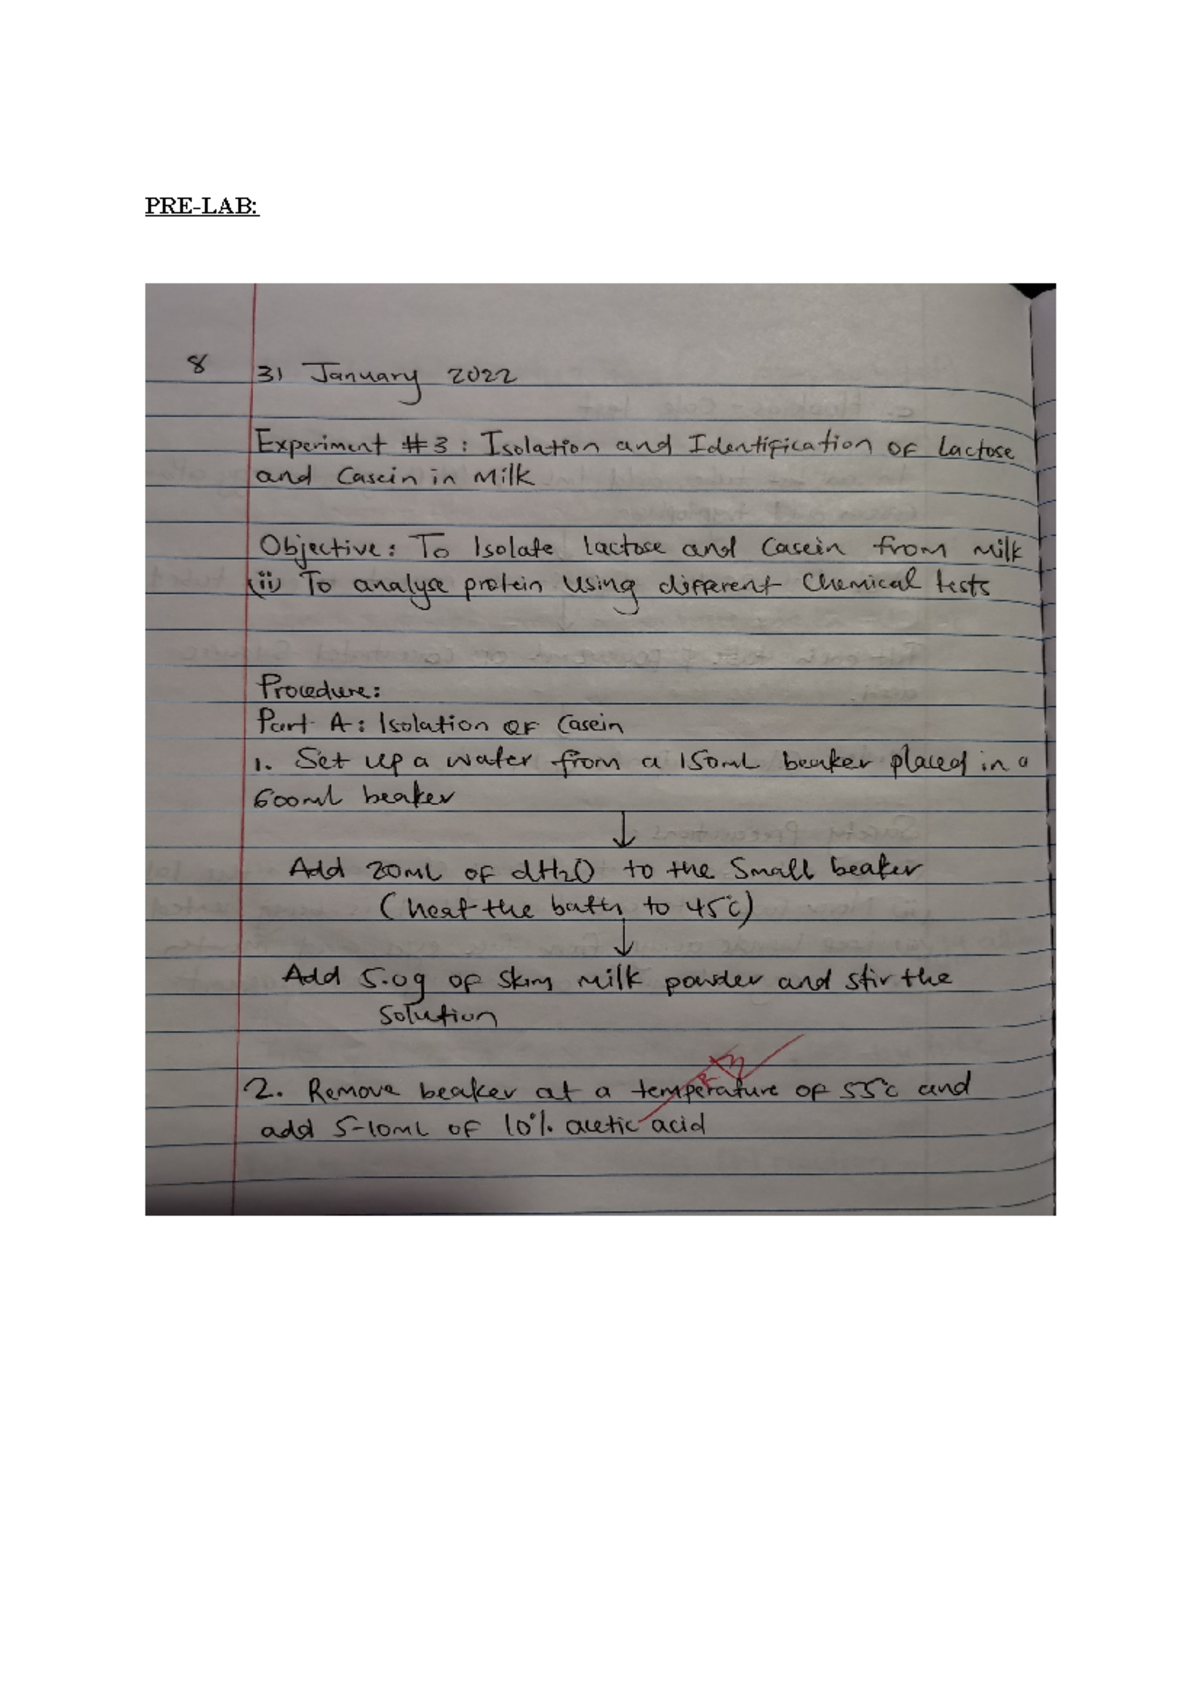 PRE-LAB:
8 31 January 2022
Experiment #3 : Isolation and Identification of Lactose
and Casein in Milk
Objective: To Isolate lactose and Casein from milk
(ii) To analyse protein using different Chemical tests
Procedure:
Part A: Isolation of Casein
1. Set up a water from a 150mL beaker placed in a
600ml beaker
↓
Add 20mL of dH2O to the Small beaker
(heat the bath to 45°c)
↓
Add 5.0g of Skim milk powder and stir the
Solution
2. Remove beaker at a temperature of 55°c and
add 5-10mL of 10% acetic acid